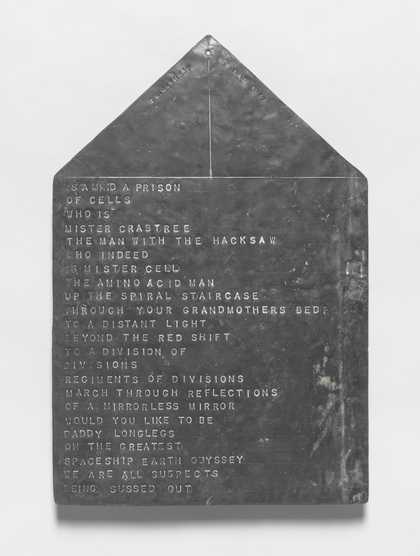 IS A MIND A PRISON
OF CELLS
WHO IS
MISTER CRABTREE
THE MAN WITH THE HACKSAW
WHO INDEED
IS MISTER CELL
THE AMINO ACID MAN
UP THE SPIRAL STAIRCASE
THROUGH YOUR GRANDMOTHERS BED
TO A DISTANT LIGHT
BEYOND THE RED SHIFT
TO A DIVISION OF
DIVISIONS
REGIMENTS OF DIVISIONS
MARCH THROUGH REFLECTIONS
OF A MIRRORLESS MIRROR
WOULD YOU LIKE TO BE
DADDY LONGLEGS
ON THE GREATEST
SPACESHIP EARTH ODYSSEY
WE ARE ALL SUSPECTS
BEING SUSSED OUT